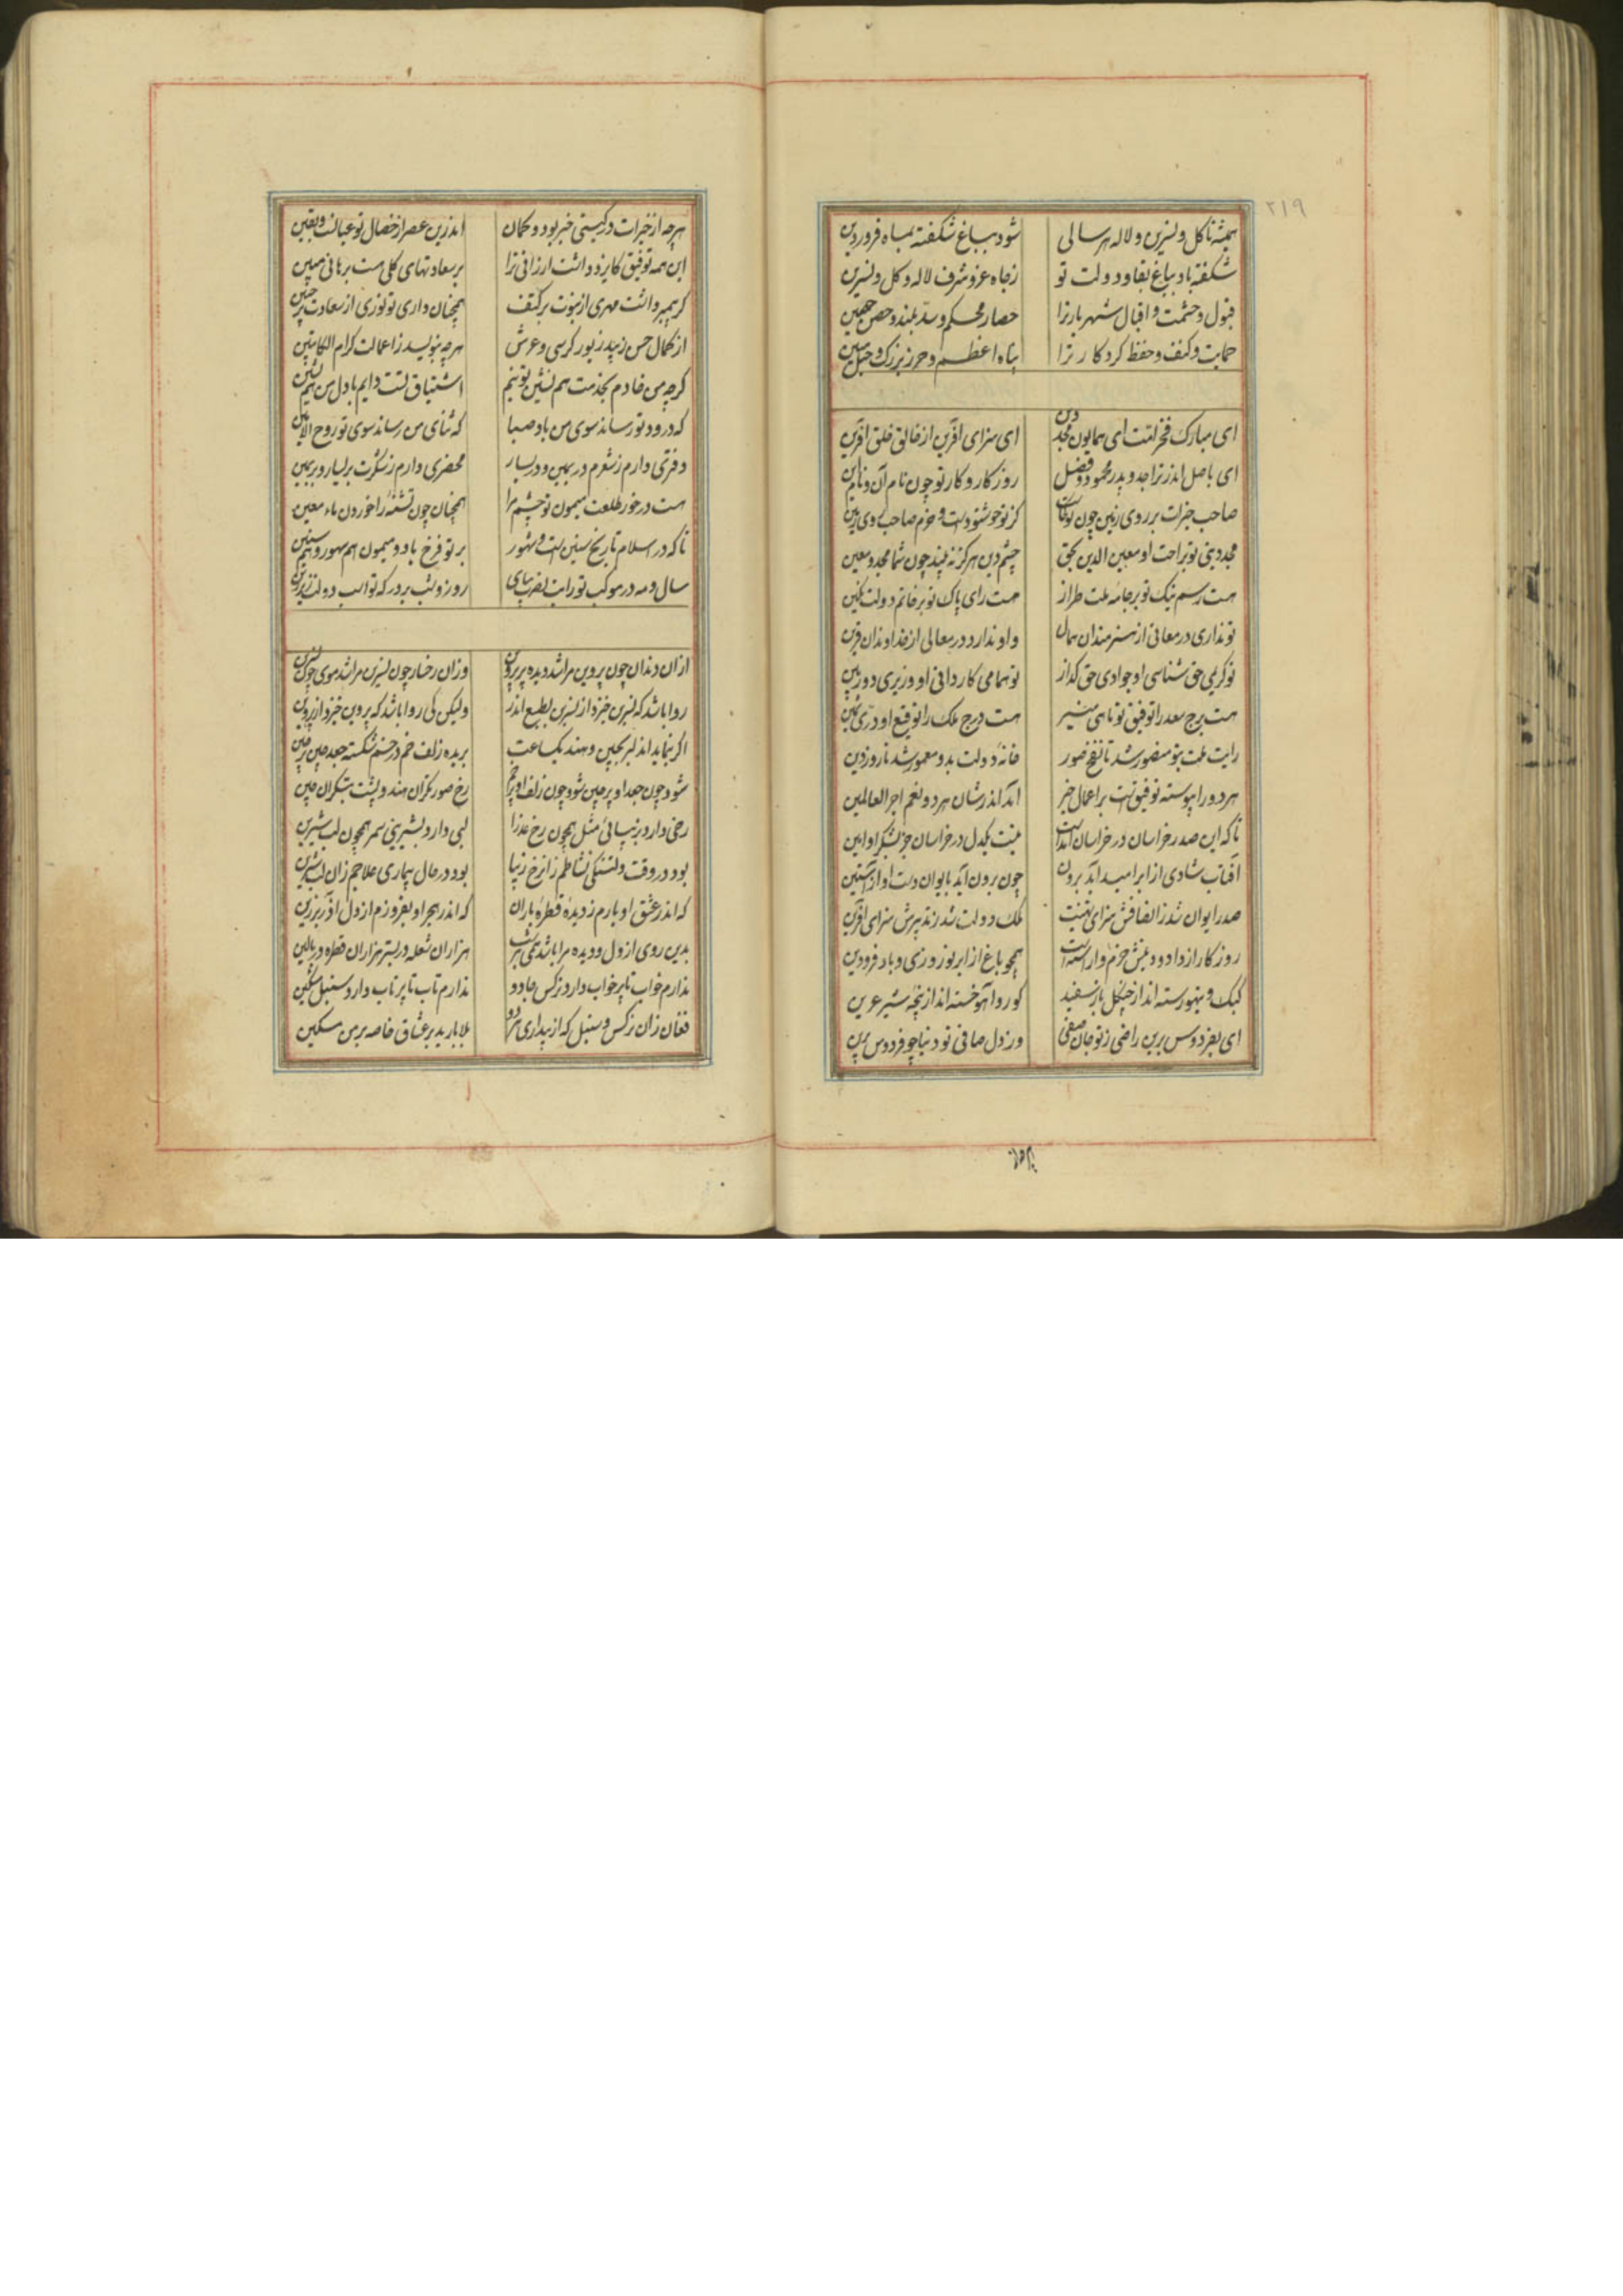 ۲۱۹
همیشه تا گل و نسرین و لاله هر سالی شود بباغ شکفته بماه فروردین
شکفته باد بباغ بقا و دولت تو ز جاه و عز و شرف لاله و گل و نسرین
قبول و حشمت و اقبال شهریار ترا حصار محکم و سد بلند و حصن حصین
حمایت و کنف و حفظ کردکار ترا پناه اعظم و حرز بزرک و حبل متین
ای مبارک فخر امت ای همایون مجد دین ای سزای افرین از خالق خلق افرین
ای باصل اندر ترا جد و پدر محمود و فضل روزکار و کار تو چون نام آن و نام این
صاحب خیرات بر روی زمین چون تو کجاست کز تو خوشنودست و خرم صاحب روی زمین
مجد دینی تو براحت او معین الدین بحق چشم دین هرکز نه بیند چون شما مجد و معین
هست رسم نیک تو بر جامه ملت طراز هست رای پاک تو بر خاتم دولت نکین
تو نداری در معانی از هنرمندان همال و او ندارد در معالی از خداوندان قرین
تو کریمی حق شناسی او جوادی حق کذار تو همامی کاردانی او وزیری دوربین
هست برج سعد را توفیق تو ماهی منیر هست درج ملک را توقیع او دری ثمین
رایت ملت بتو منصور شد تا نفخ صور خانه دولت بدو معمور شد تا روز دین
هر دو را پیوسته توفیق است بر اعمال خیر اندر شان هر دو نعم اجر العالمین
تا که این صدر خراسان در خراسان آمدست نیست یکدل در خراسان جز بشکر او رهین
آفتاب شادی از ابر امید آید برون چون برون آید بایوان دست او از آستین
صدر ایوان شد ز انفاقش سزای تهنیت ملک و دولت شد ز تدبیرش سزای افرین
روزکار از داد و دینش خرم و آراسته است همچو باغ از ابر نوروزی و باد فرودین
کبک و تیهو رسته اند از چنکل باز سفید کور و آهو خسته اند از پنجه شیر عرین
ای بفردوس برین راضی ز تو جان صفی وز دل صافی تو دنیا چو فردوس برین
هرچه از خیرات در کیتی خبر بود و کمان اندرین عصر از خصال تو عیانست و یقین
این همه توفیق کایزد داشت ارزانی ترا بر سعادتهای کلی هست برهانی مبین
کر پیمبر داشت مهری از نبوت بر کتف همچنان داری تو نوری از سعادت بر جبین
از کمال حسن زیبد زیور کرسی و عرش هرچه بنویسد ز اعمالت کرام الکاتبین
کرچه من خادم بخدمت هم نشین تو نیم اشتیاق تست دایم با دل من هم نشین
که درود تو رساند سوی من باد صبا که ثنای من رساند سوی تو روح الامین
دفتری دارم ز شعرم در یمین و در یسار محضری دارم ز شکرت بر یسار و بر یمین
هست در خور طلعت میمون تو چشم مرا همچنان چون تشنه را خوردن ماء معین
تا که در اسلام تاریخ سنین است و شهور بر تو فرخ باد و میمون هم شهور و هم سنین
سال و مه در موکب تو رایت نصرت بپای روز و شب بر درکه تو اسب دولت زیر زین
از ان دندان چون پروین مرا شد دیده پر پروین وزان رخسار چون نسرین مرا شد موی چون نسرین
روا باشد که نسرین خیزد از نسرین بطبع اندر ولیکن کی روا باشد که پروین خیزد از پروین
اکر بنماید اندر چین و هند یکساعت بریده زلف خم در خم شکسته جعد چین بر چین
شود چون جعد او پر چین شود چون زلف او پر خم رخ صورتکران هند و پشت بتکران چین
رخی دارد بزیبائی مثل همچون رخ عذرا لبی دارد بشیرینی سمر همچون لب شیرین
بود در وقت دلتنکی نشاطم زان رخ زیبا بود در حال بیماری علاجم زان لب شیرین
که اندر عشق او بارم ز دیده قطره باران که اندر هجر او بفروزم از دل آذر برزین
بدین روی از دل و دیده مرا باشد همی هر شب هزاران شعله در بستر هزاران قطره در بالین
ندارم خواب تا پر خواب دارد نرکس جادو ندارم تاب تا پر تاب دارد سنبل مشکین
فغان زان نرکس و سنبل که از بیداری هر دو بلا بارید بر عشاق خاصه بر من مسکین